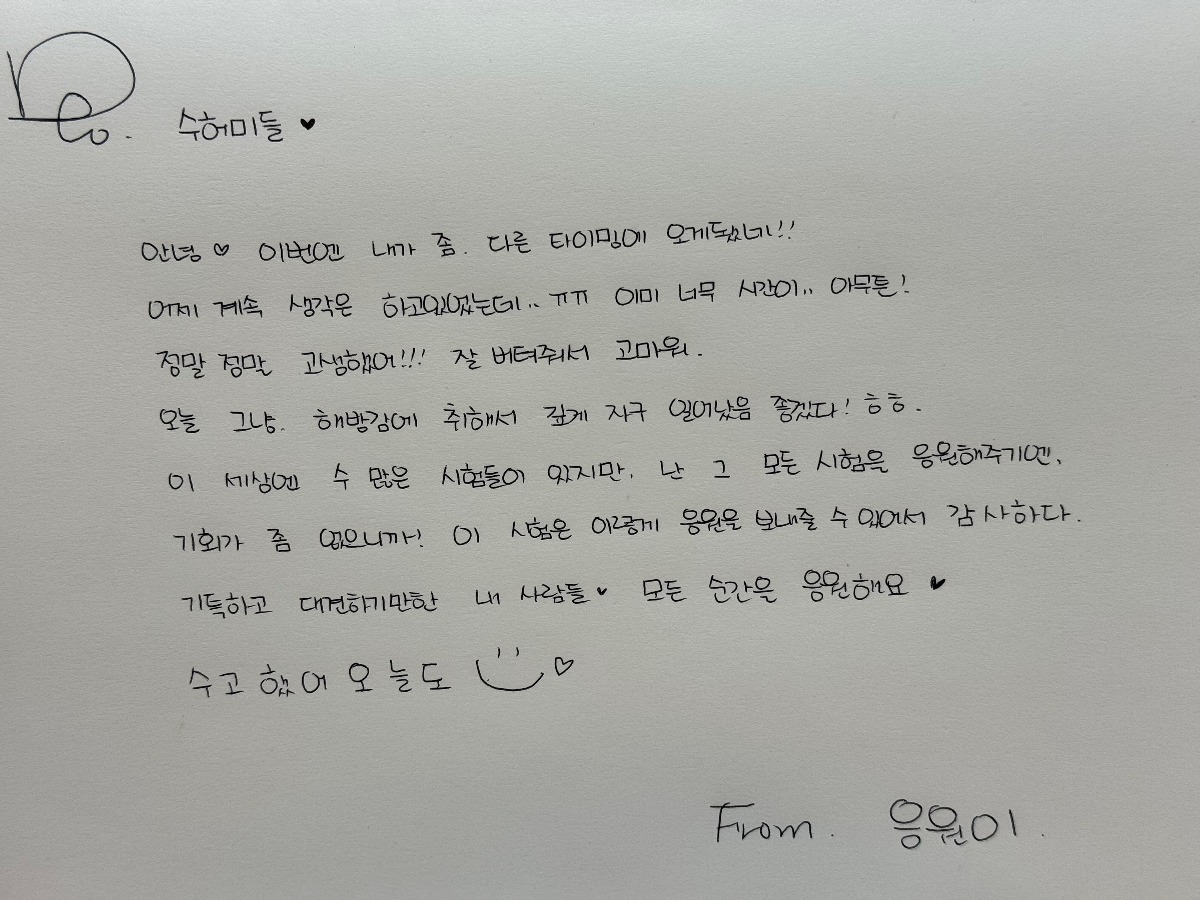 To. 수허미들 ♥
안녕 ♡ 이번엔 내가 좀. 다른 타이밍에 오게됐네!!
어제 계속 생각은 하고있었는데.. ㅠㅠ 이미 너무 시간이.. 아무튼!
정말 정말 고생했어!!! 잘 버텨줘서 고마워.
오늘 그냥. 해방감에 취해서 깊게 자구 일어났음 좋겠다! ㅎㅎ.
이 세상엔 수 많은 시험들이 있지만, 난 그 모든 시험을 응원해주기엔,
기회가 좀 없으니까! 이 시험은 이렇게 응원을 보내줄 수 있어서 감사하다.
기특하고 대견하기만한 내 사람들♥ 모든 순간을 응원해요 ♥
수고했어 오늘도 ♡
From. 응원이.